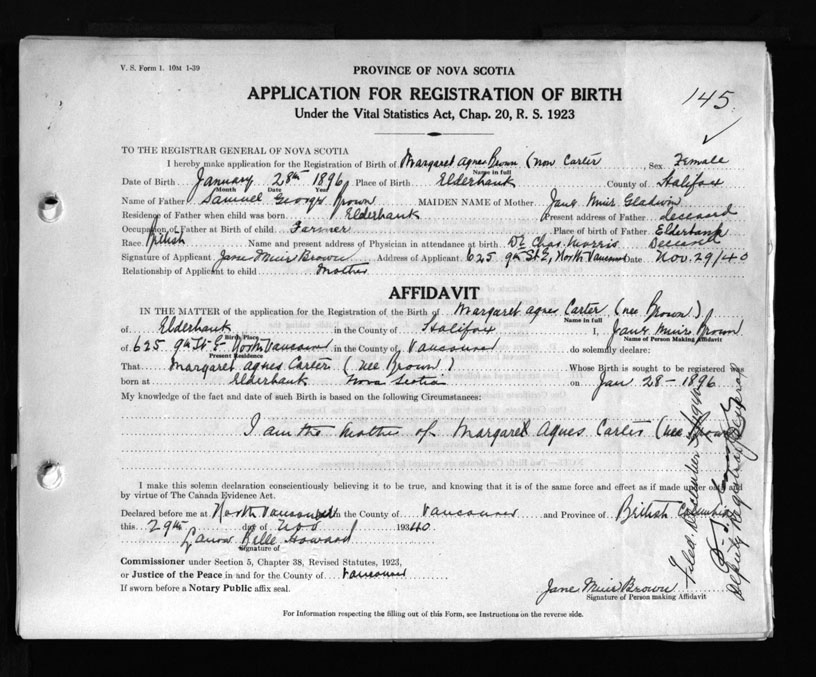 V. S. Form 1. 10M 1-39
PROVINCE OF NOVA SCOTIA
APPLICATION FOR REGISTRATION OF BIRTH
145
Under the Vital Statistics Act, Chap. 20, R. S. 1923
TO THE REGISTRAR GENERAL OF NOVA SCOTIA
I hereby make application for the Registration of Birth of Margaret Agnes Brown (now Carter Sex Female
Name in full
Date of Birth January 28th 1896 Place of Birth Elderbank County of Halifax
Month Date Year
Name of Father Samuel George Brown MAIDEN NAME of Mother Jane Muir Gladwin
Residence of Father when child was born Elderbank Present address of Father deceased
Occupation of Father at Birth of child Farmer Place of birth of Father Elderbank
Race British Name and present address of Physician in attendance at birth Dr Chas. Morris Deceased
Signature of Applicant Jane Muir Brown Address of Applicant 625 9th St E, North Vancouver Date Nov. 29/40
Relationship of Applicant to child Mother
AFFIDAVIT
IN THE MATTER of the application for the Registration of the Birth of Margaret Agnes Carter (nee Brown)
Name in full
of Elderbank in the County of Halifax I, Jane Muir Brown
Birth Place Name of Person Making Affidavit
of 625 9th St E North Vancouver in the County of Vancouver do solemnly declare:
Present Residence
That Margaret Agnes Carter (nee Brown) Whose Birth is sought to be registered was
born at Elderbank Nova Scotia on Jan 28 - 1896
My knowledge of the fact and date of such Birth is based on the following Circumstances:
I am the mother of Margaret Agnes Carter (nee Brown
I make this solemn declaration conscientiously believing it to be true, and knowing that it is of the same force and effect as if made under oath and
by virtue of The Canada Evidence Act.
Declared before me at North Vancouver in the County of Vancouver and Province of British Columbia
this 29th day of Nov 1940
Belle Howard
Signature of
Commissioner under Section 5, Chapter 38, Revised Statutes, 1923,
or Justice of the Peace in and for the County of Vancouver
If sworn before a Notary Public affix seal.
Jane Muir Brown
Signature of Person making Affidavit
For Information respecting the filling out of this Form, see Instructions on the reverse side.
Filed. December
Deputy Registrar General